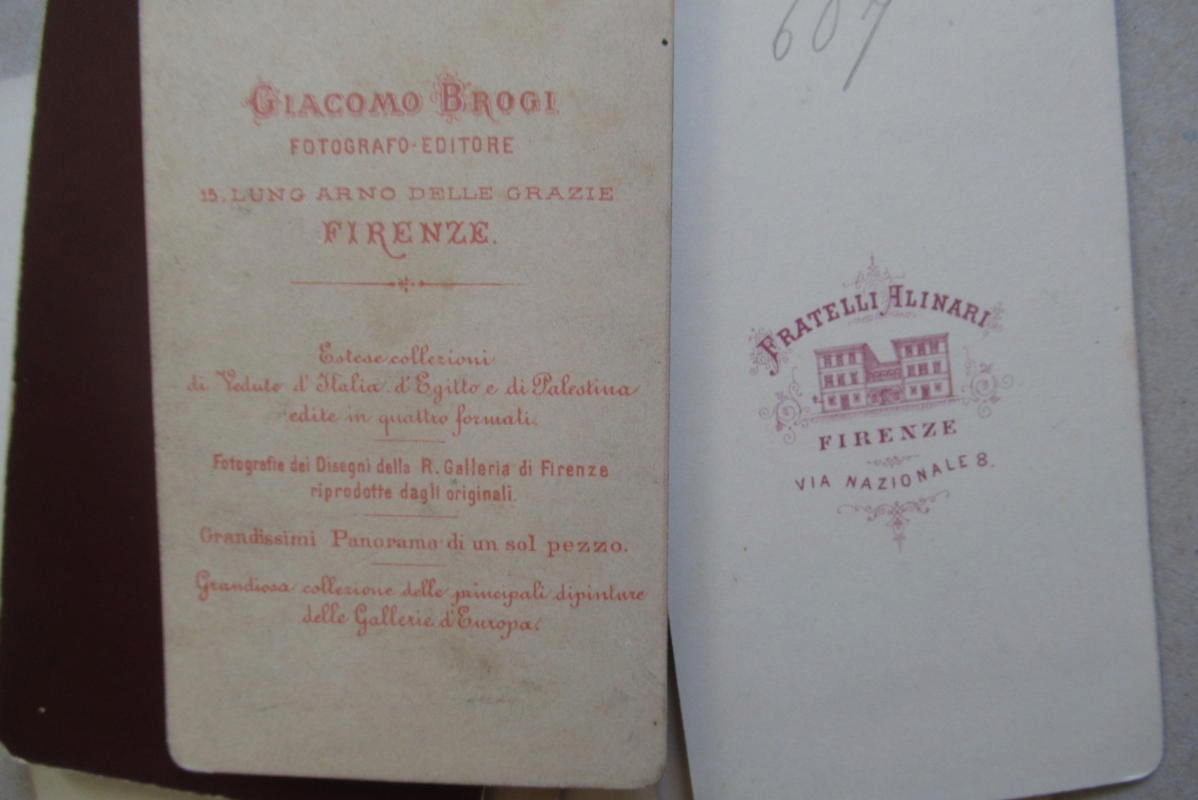 GIACOMO BROGI
FOTOGRAFO-EDITORE
15. LUNG ARNO DELLE GRAZIE
FIRENZE.
Estese collezioni
di Vedute d'Italia d'Egitto e di Palestina
edite in quattro formati.
Fotografie dei Disegni della R. Galleria di Firenze
riprodotte dagli originali.
Grandissimi Panorama di un sol pezzo.
Grandiosa collezione delle principali dipinture
delle Gallerie d'Europa.
607
FRATELLI ALINARI
FIRENZE
VIA NAZIONALE 8.